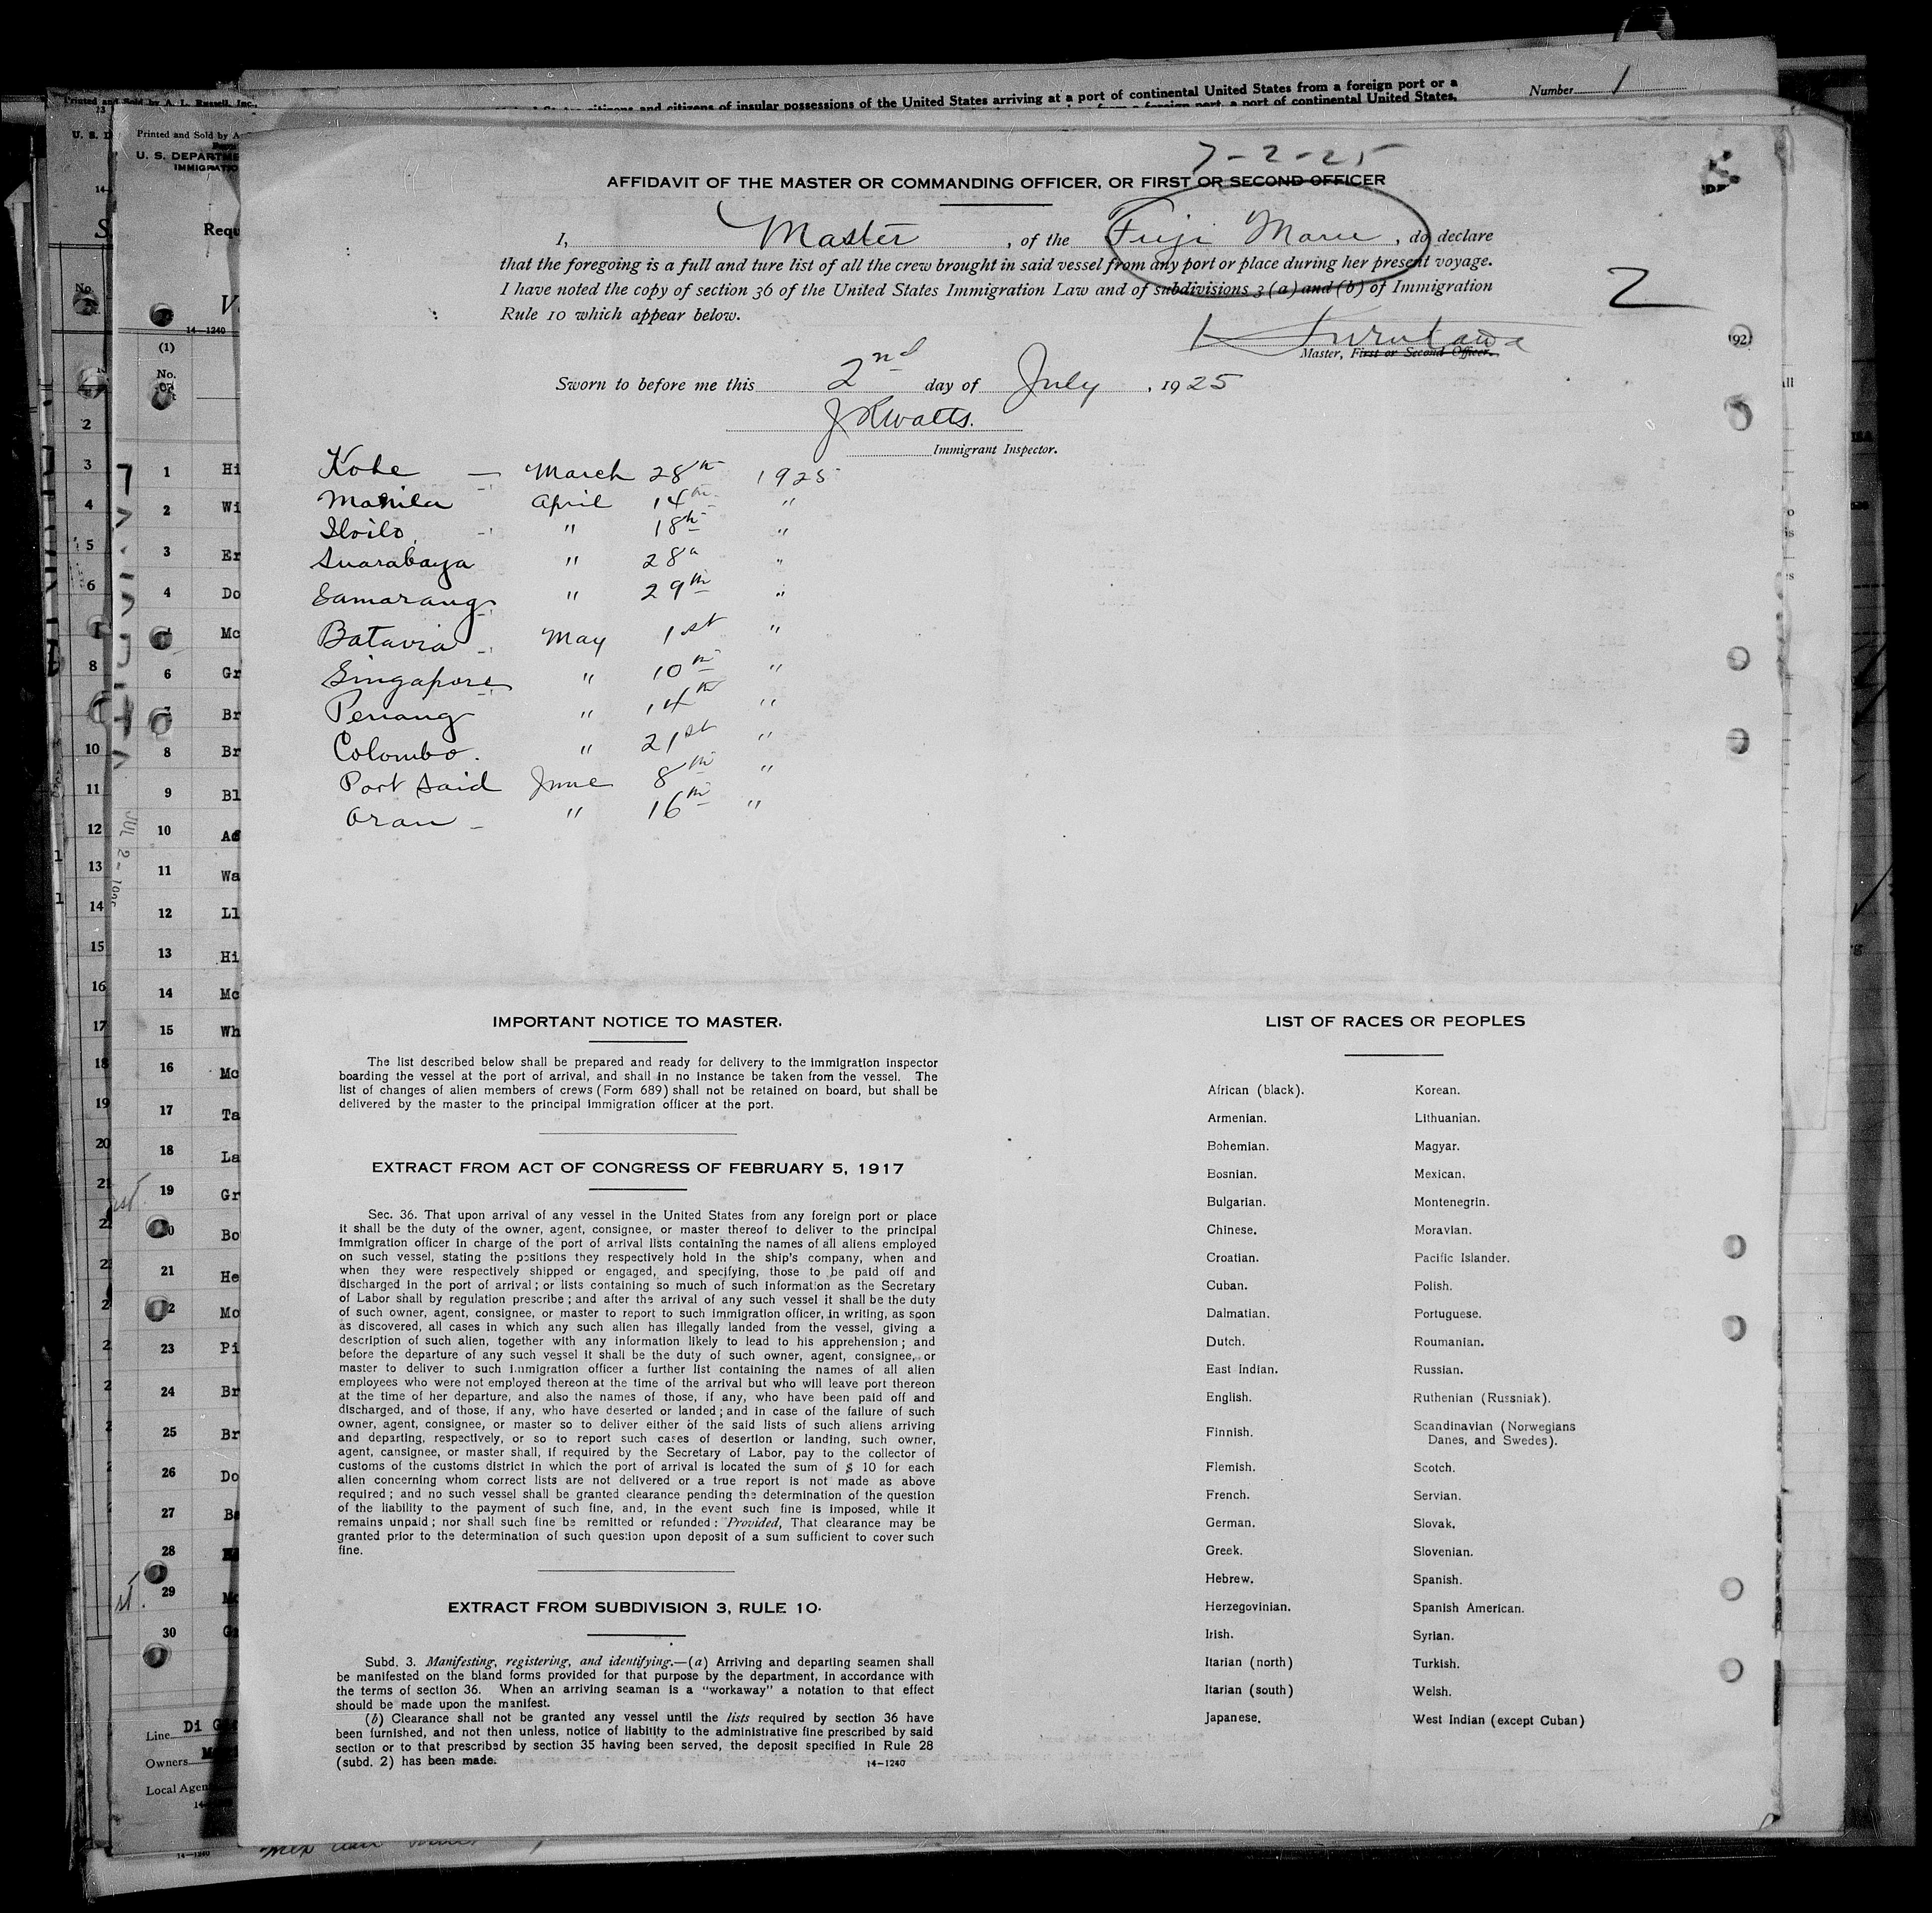 Printed and Sold by A. L. Russell, Inc.,
citizens and citizens of insular possessions of the United States arriving at a port of continental United States from a foreign port or a
a port of continental United States.
Number 1
Printed and Sold by A
U. S. DEPARTME
IMMIGRATIO
Requ
14—1240
(1)
No.
7-2-25
AFFIDAVIT OF THE MASTER OR COMMANDING OFFICER, OR FIRST OR SECOND OFFICER
I, Master, of the Fuji Maru, do declare
that the foregoing is a full and ture list of all the crew brought in said vessel from any port or place during her present voyage.
I have noted the copy of section 36 of the United States Immigration Law and of subdivisions 3 (a) and (b) of Immigration
Rule 10 which appear below.
2
Master, First or Second Officer.
Sworn to before me this 2nd day of July, 1925
J R Watts.
Immigrant Inspector.
Kobe — March 28th 1925
Manila April 14th "
Iloilo - " 18th "
Suarabaya " 28th "
Samarang - " 29th "
Batavia - May 1st "
Singapore " 10th "
Penang " 14th "
Colombo. " 21st "
Port Said June 8th "
Oran - " 16th "
IMPORTANT NOTICE TO MASTER.
The list described below shall be prepared and ready for delivery to the immigration inspector
boarding the vessel at the port of arrival, and shall in no instance be taken from the vessel. The
list of changes of alien members of crews (Form 689) shall not be retained on board, but shall be
delivered by the master to the principal immigration officer at the port.
EXTRACT FROM ACT OF CONGRESS OF FEBRUARY 5, 1917
Sec. 36. That upon arrival of any vessel in the United States from any foreign port or place
it shall be the duty of the owner, agent, consignee, or master thereof to deliver to the principal
immigration officer in charge of the port of arrival lists containing the names of all aliens employed
on such vessel, stating the positions they respectively hold in the ship's company, when and
when they were respectively shipped or engaged, and specifying, those to be paid off and
discharged in the port of arrival; or lists containing so much of such information as the Secretary
of Labor shall by regulation prescribe; and after the arrival of any such vessel it shall be the duty
of such owner, agent, consignee, or master to report to such immigration officer, in writing, as soon
as discovered, all cases in which any such alien has illegally landed from the vessel, giving a
description of such alien, together with any information likely to lead to his apprehension; and
before the departure of any such vessel it shall be the duty of such owner, agent, consignee, or
master to deliver to such immigration officer a further list containing the names of all alien
employees who were not employed thereon at the time of the arrival but who will leave port thereon
at the time of her departure, and also the names of those, if any, who have been paid off and
discharged, and of those, if any, who have deserted or landed; and in case of the failure of such
owner, agent, consignee, or master so to deliver either of the said lists of such aliens arriving
and departing, respectively, or so to report such cases of desertion or landing, such owner,
agent, cansignee, or master shall, if required by the Secretary of Labor, pay to the collector of
customs of the customs district in which the port of arrival is located the sum of $ 10 for each
alien concerning whom correct lists are not delivered or a true report is not made as above
required; and no such vessel shall be granted clearance pending the determination of the question
of the liability to the payment of such fine, and, in the event such fine is imposed, while it
remains unpaid; nor shall such fine be remitted or refunded: Provided, That clearance may be
granted prior to the determination of such question upon deposit of a sum sufficient to cover such
fine.
EXTRACT FROM SUBDIVISION 3, RULE 10.
Subd. 3. Manifesting, registering, and identifying.—(a) Arriving and departing seamen shall
be manifested on the bland forms provided for that purpose by the department, in accordance with
the terms of section 36. When an arriving seaman is a "workaway" a notation to that effect
should be made upon the manifest.
(b) Clearance shall not be granted any vessel until the lists required by section 36 have
been furnished, and not then unless, notice of liabitity to the administrative fine prescribed by said
section or to that prescribed by section 35 having been served, the deposit specified in Rule 28
(subd. 2) has been made.
14—1240
LIST OF RACES OR PEOPLES
African (black). Korean.
Armenian. Lithuanian.
Bohemian. Magyar.
Bosnian. Mexican.
Bulgarian. Montenegrin.
Chinese. Moravian.
Croatian. Pacific Islander.
Cuban. Polish.
Dalmatian. Portuguese.
Dutch. Roumanian.
East Indian. Russian.
English. Ruthenian (Russniak).
Finnish. Scandinavian (Norwegians
Danes, and Swedes).
Flemish. Scotch.
French. Servian.
German. Slovak.
Greek. Slovenian.
Hebrew. Spanish.
Herzegovinian. Spanish American.
Irish. Syrian.
Itarian (north) Turkish.
Itarian (south) Welsh.
Japanese. West Indian (except Cuban)
1 Hi
2 Wi
3 Er
4 Do
Mc
6 Gr
Br
8 Br
9 Bl
10
11 Wa
12 Ll
13 Hi
14 Mc
15 Wh
16 Mc
17 Ta
18 La
19 Gr
Bo
21 He
Mo
23 Pi
24 Br
25 Br
26 Do
27 Ba
28
29 Mc
30
Line Di
Owners
Local Agen